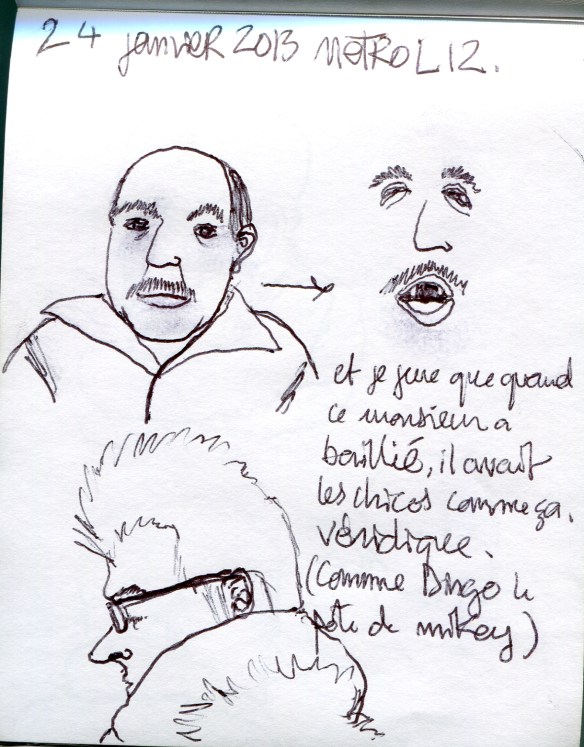 24 janvier 2013 METRO L12.
et je jure que quand
ce monsieur a
baillié, il avait
les chicos comme ça.
véridique.
(comme Dingo le
pote de mikey)